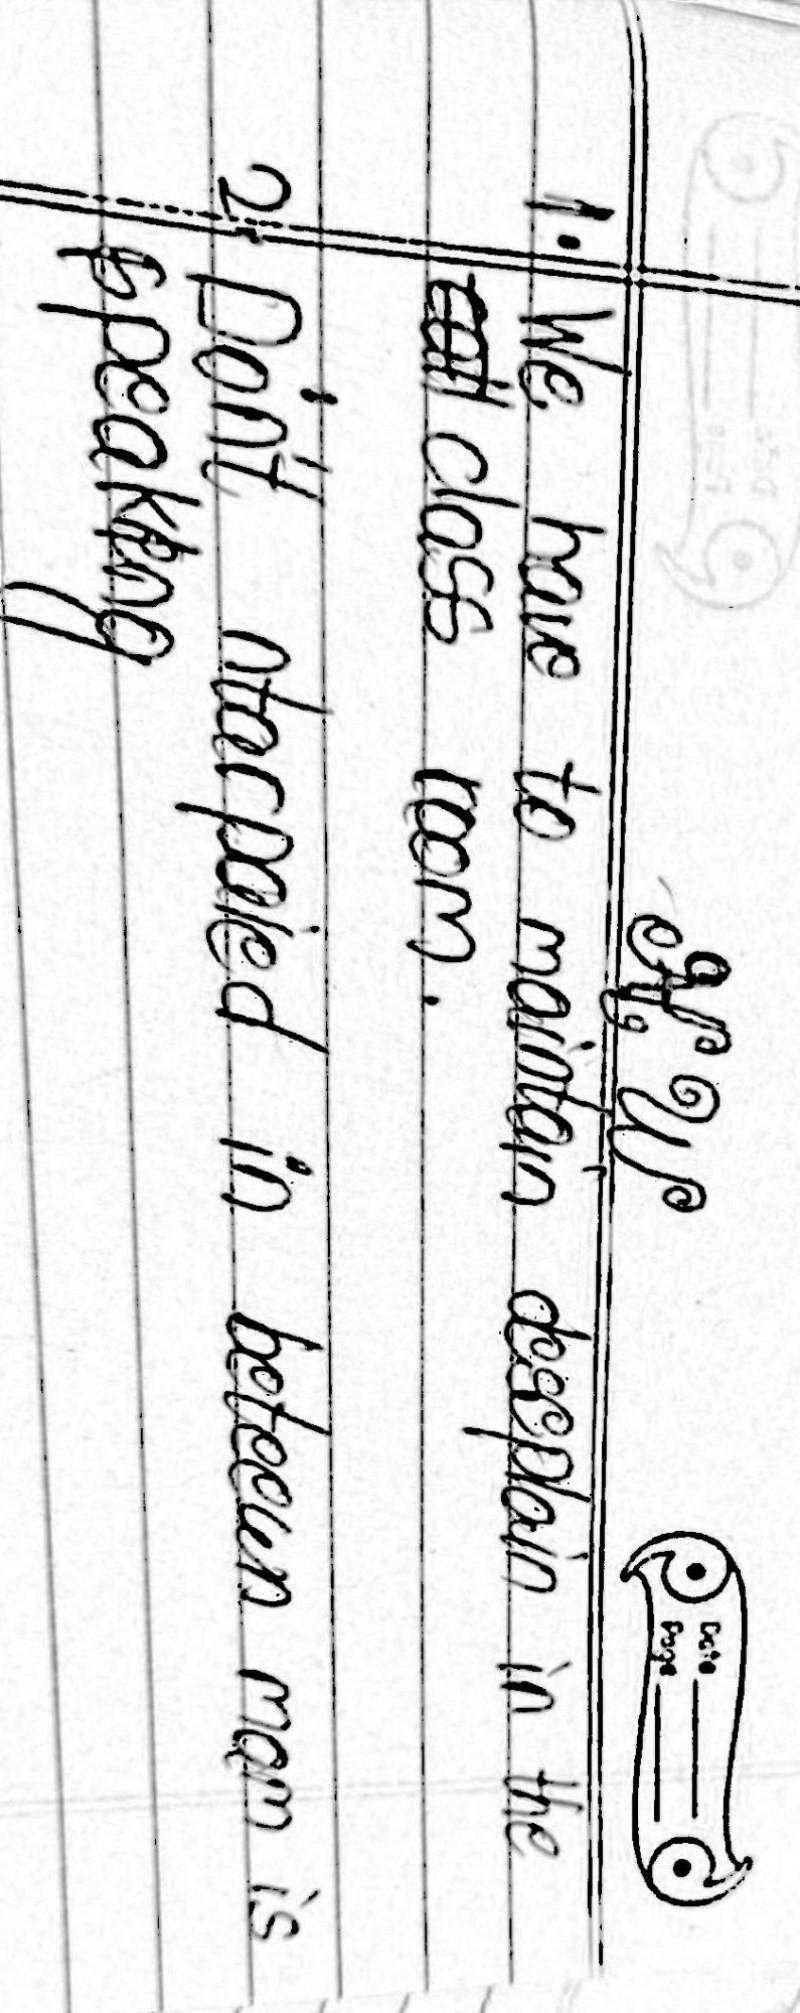 Date
Page
1. We have to maintain deseplain in the
class room.
2. Don't nterpaled in beteeun mam is
speaking